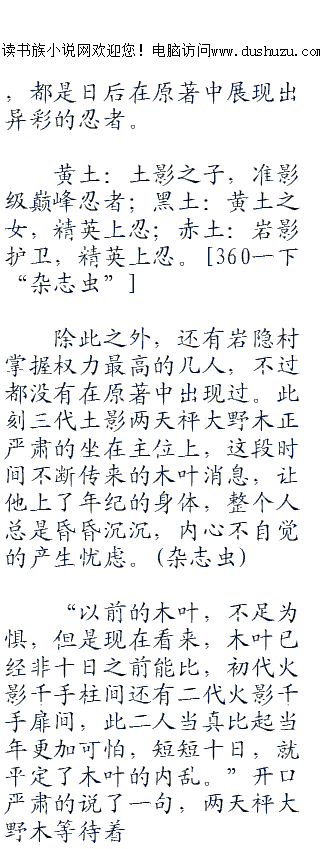 读书族小说网欢迎您！电脑访问www.dushuzu.com
，都是日后在原著中展现出
异彩的忍者。
黄土：土影之子，准影
级巅峰忍者；黑土：黄土之
女，精英上忍；赤土：岩影
护卫，精英上忍。[360一下
“杂志虫”]
除此之外，还有岩隐村
掌握权力最高的几人，不过
都没有在原著中出现过。此
刻三代土影两天秤大野木正
严肃的坐在主位上，这段时
间不断传来的木叶消息，让
他上了年纪的身体，整个人
总是昏昏沉沉，内心不自觉
的产生忧虑。(杂志虫)
“以前的木叶，不足为
惧，但是现在看来，木叶已
经非十日之前能比，初代火
影千手柱间还有二代火影千
手扉间，此二人当真比起当
年更加可怕，短短十日，就
平定了木叶的内乱。”开口
严肃的说了一句，两天秤大
野木等待着